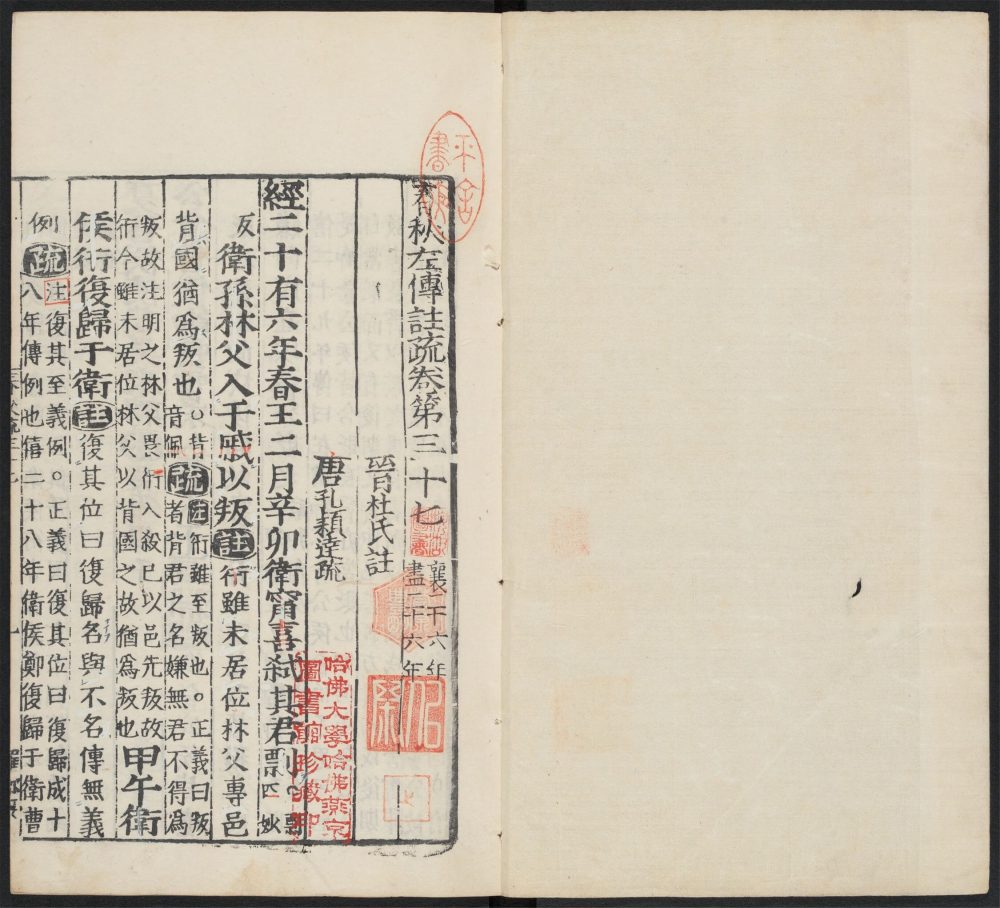 春秋左傳註疏卷第三十七
襄二十六年
盡二十六年
晉杜氏註
唐孔穎達疏
經二十有六年春王二月辛卯衛甯喜弒其君剽
匹妙
反
衛孫林父入于戚以叛註衎雖未居位林父專邑
背國猶爲叛也○背
音佩
疏
注衎雖至叛也○正義曰叛
者背君之名嫌無君不得爲
叛故注明之林父畏衎入殺已以邑先叛故
衎今雖未居位林父以背國之故猶爲叛也
甲午衛
侯衎復歸于衛註復其位曰復歸名與不名傳無義
例疏
注復其至義例○正義曰復其位曰復歸成十
八年傳例也僖二十八年衛侯鄭復歸于衛曹
哈佛大學哈佛燕京
圖書館珍藏印